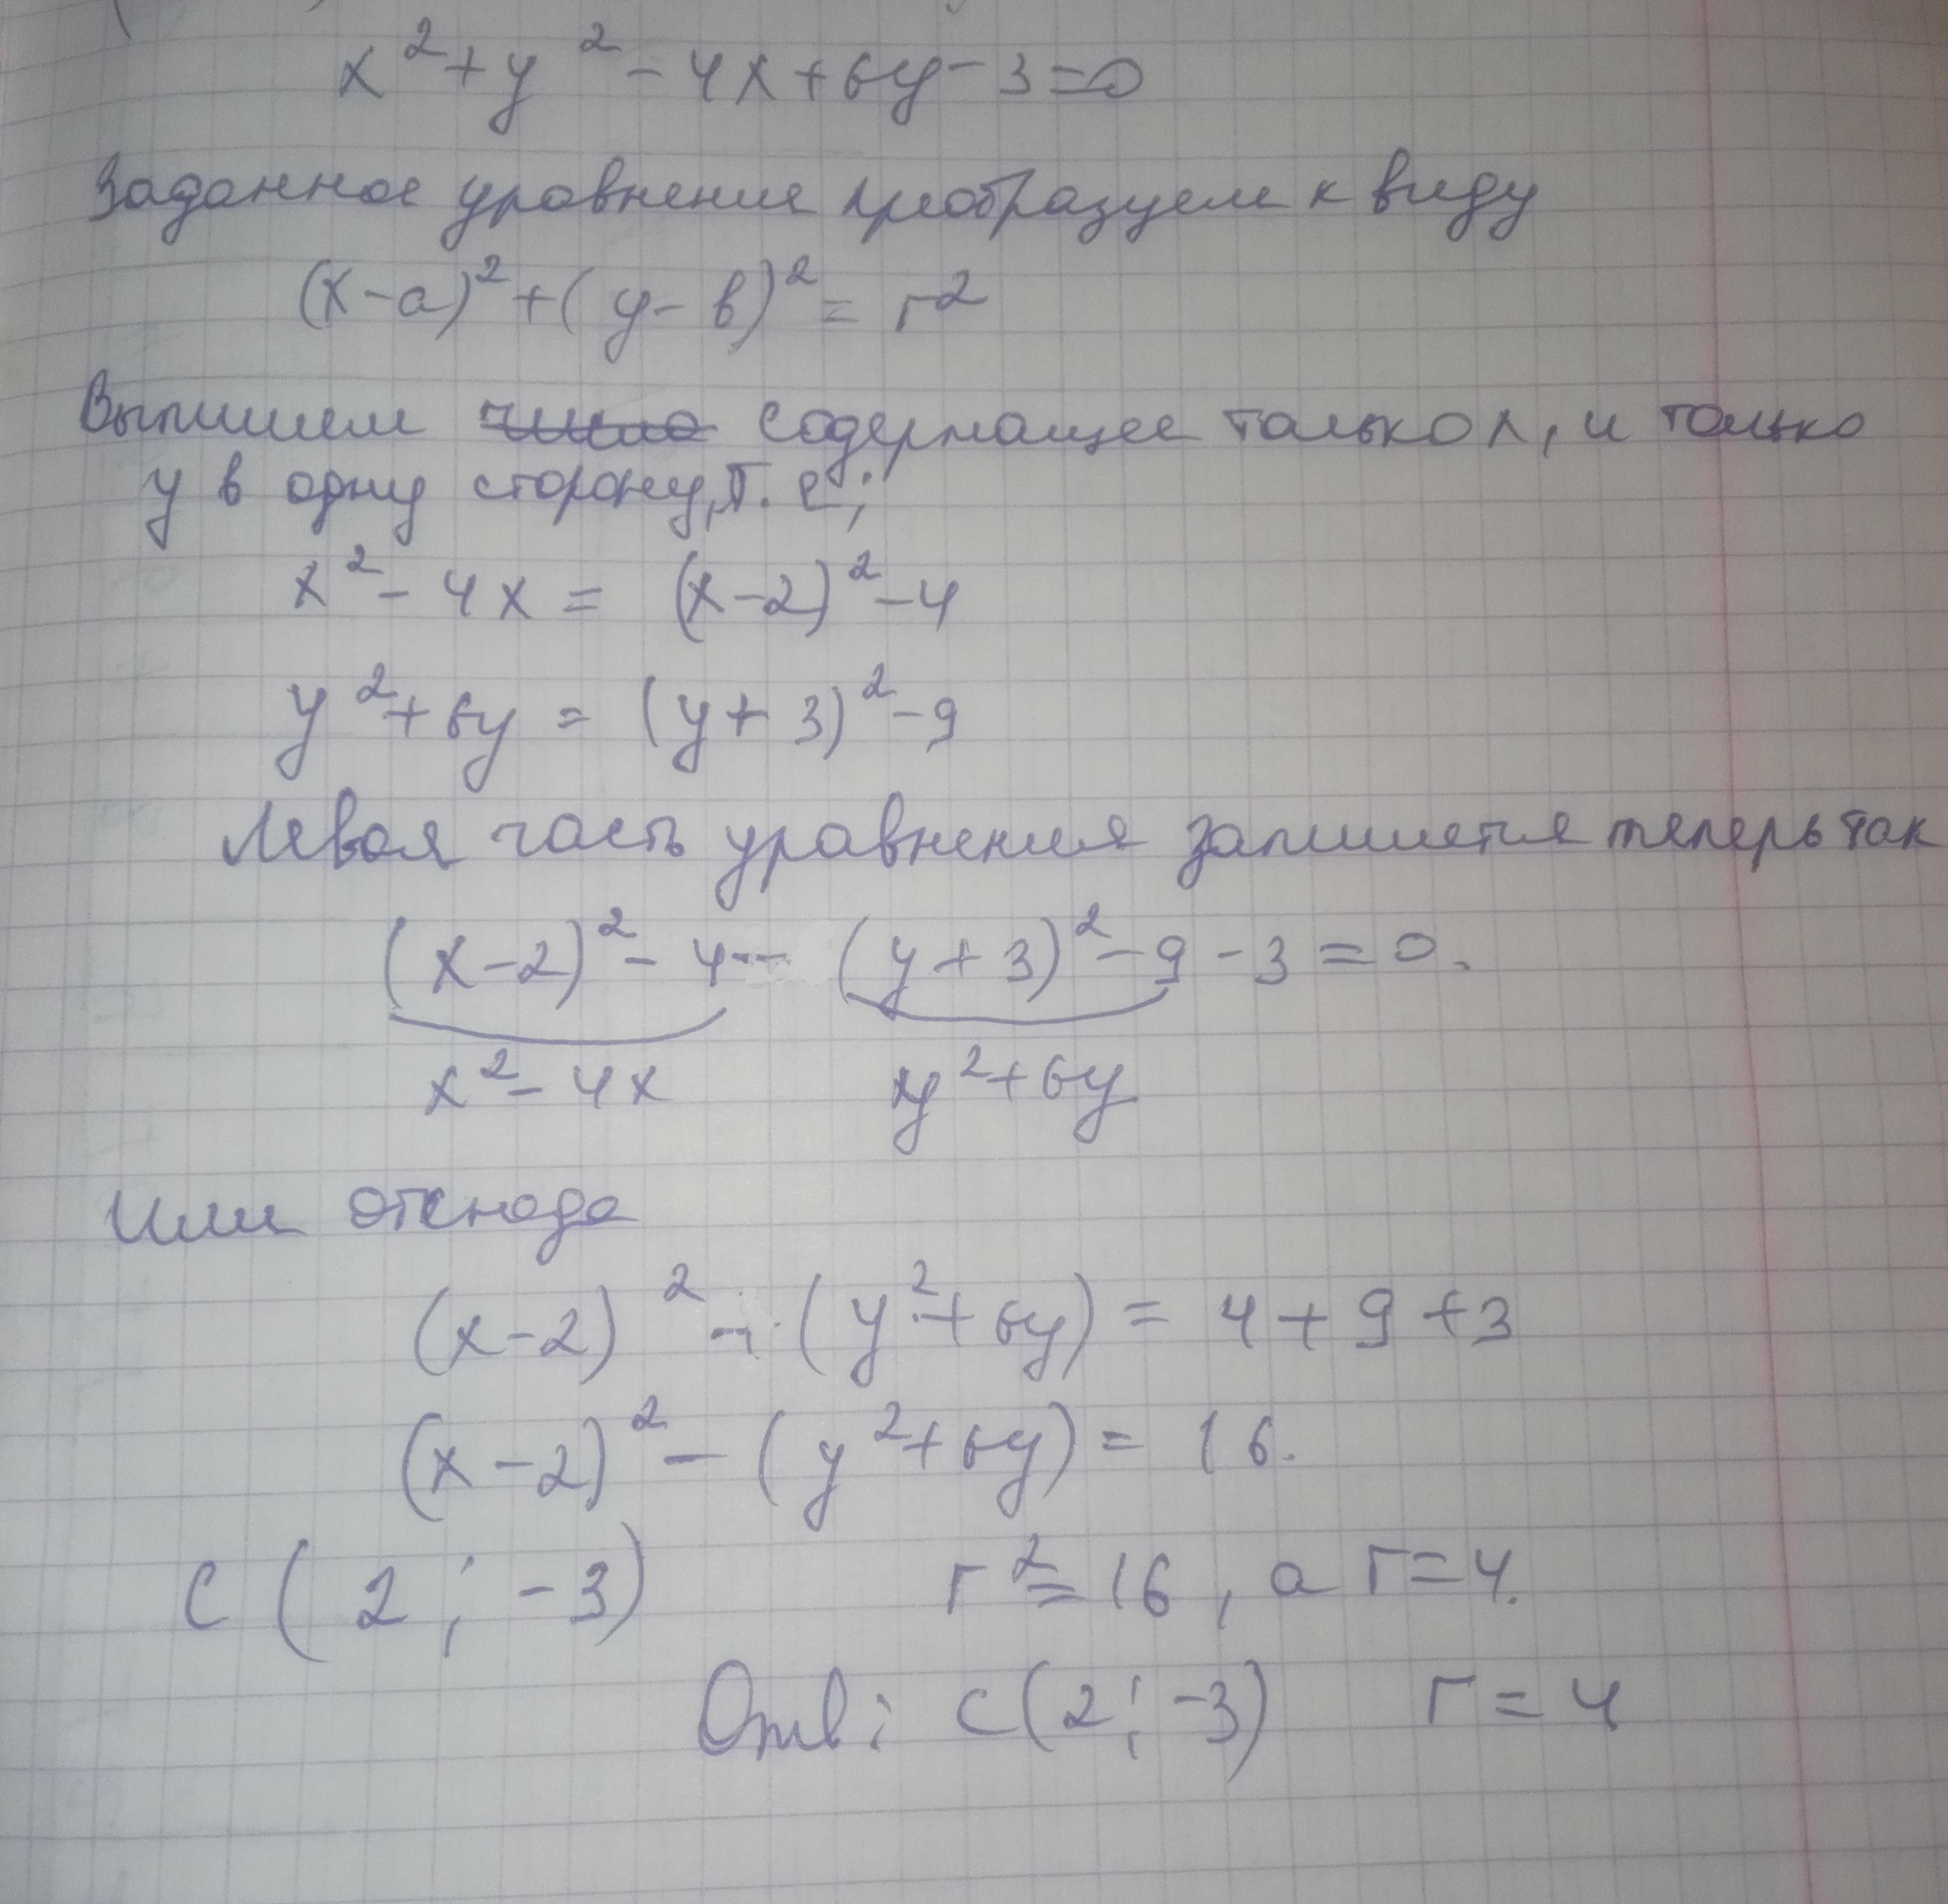 x² + y² - 4x + 6y - 3 = 0
Заданное уравнение преобразуем к виду
(x - a)² + (y - b)² = r²
Выпишем содержащее только x, и только
y в одну сторону, т. е;
x² - 4x = (x - 2)² - 4
y² + 6y = (y + 3)² - 9
Левая часть уравнения запишется теперь так
(x - 2)² - 4 - (y + 3)² - 9 - 3 = 0.
x² - 4x y² + 6y
Или отсюда
(x - 2)² - (y² + 6y) = 4 + 9 + 3
(x - 2)² - (y² + 6y) = 16.
C (2 ; -3) r² = 16, а r = 4.
Отв: C (2 ; -3) r = 4